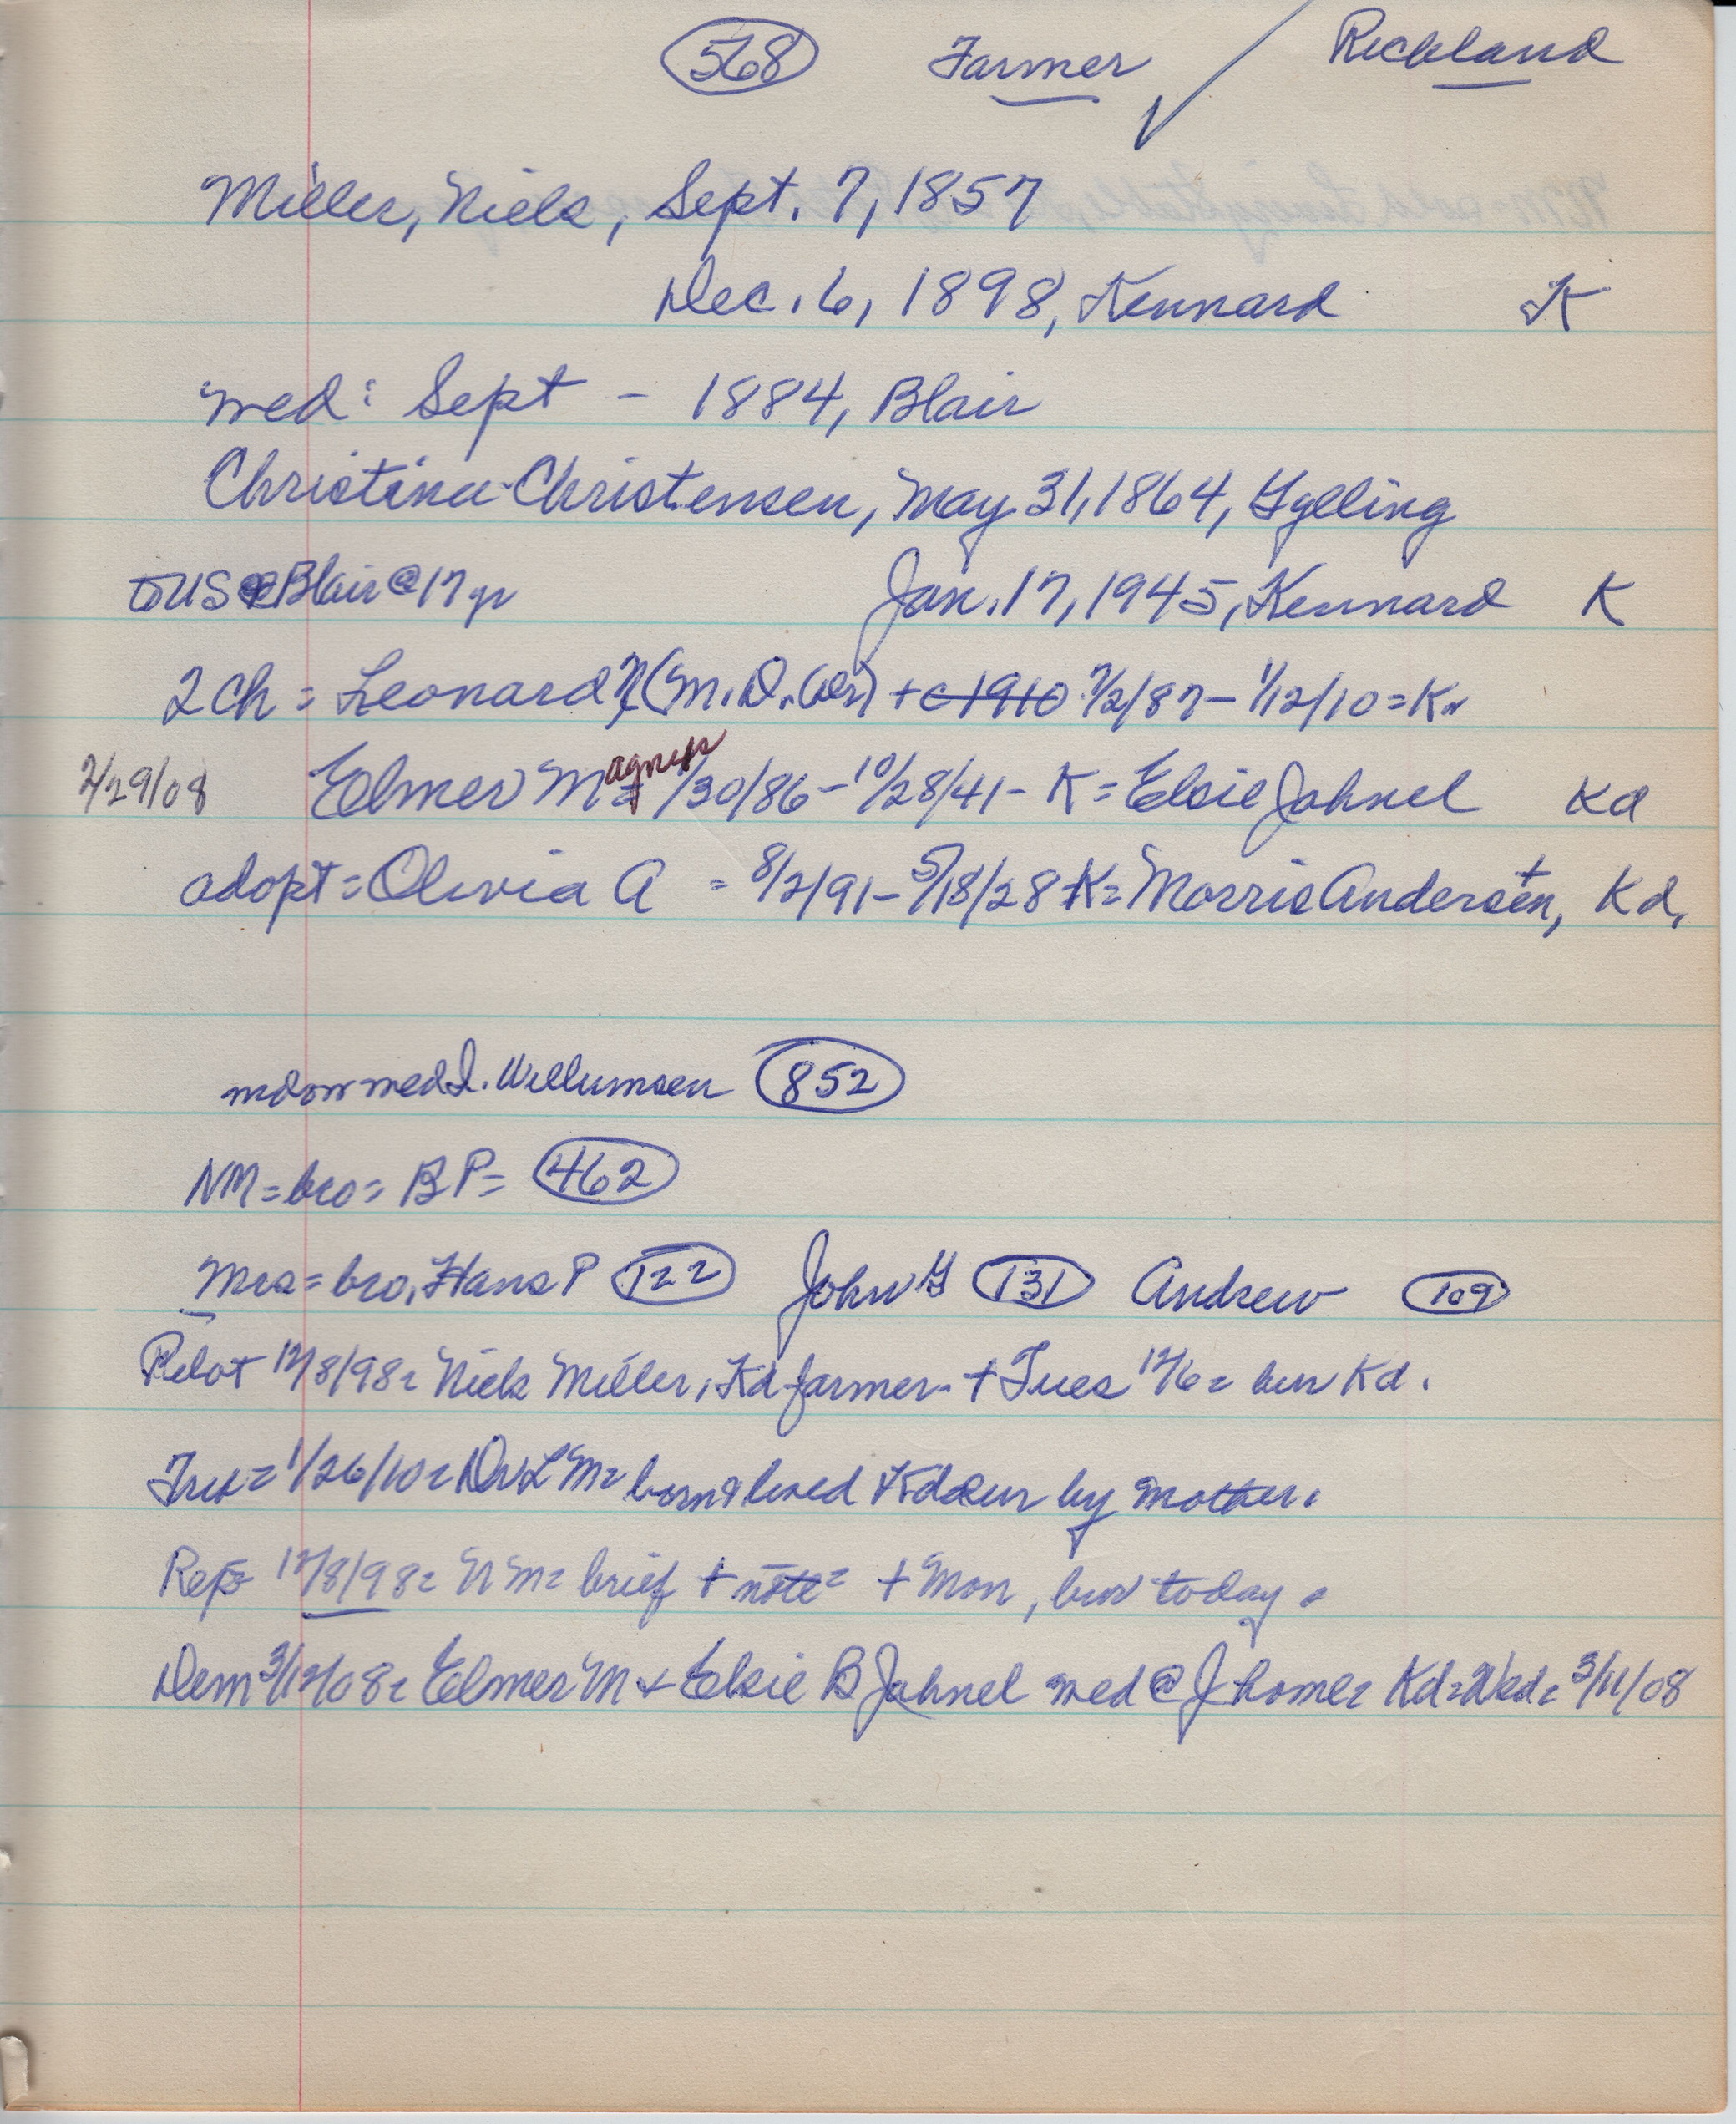 568 Farmer ✓ Richland
Miller, Niels, Sept. 7, 1857
Dec. 6, 1898, Kennard K
med: Sept - 1884, Blair
Christina Christensen, May 31, 1864, Gylling
to US Blair @ 17 yr Jan. 17, 1945, Kennard K
2 ch = Leonard (M.D. ) + c 1910 7/2/87 - 1/12/10 = K
2/29/08 Elmer Magnus = /30/86 - 10/28/41 - K = Elsie Jahnel Kd
adopt = Olivia A = 8/2/91 - 5/18/28 K = Morris Andersen, Kd.
wdow med I. Willumsen 852
NM = bro = B P = 462
Mrs = bro, Hans P 122 John G 131 Andrew 109
Pilot 12/8/98 = Niels Miller, Kd farmer - + Tues 12/6 = bur Kd.
= 1/26/10 = Dr L M = born & lived Kd bur by mother.
Rep = 12/8/98 = N M = brief + note = + Mon, bur today.
Dem 3/12/08 = Elmer M + Elsie B Jahnel med @ J home = Kd = Wed = 3/11/08